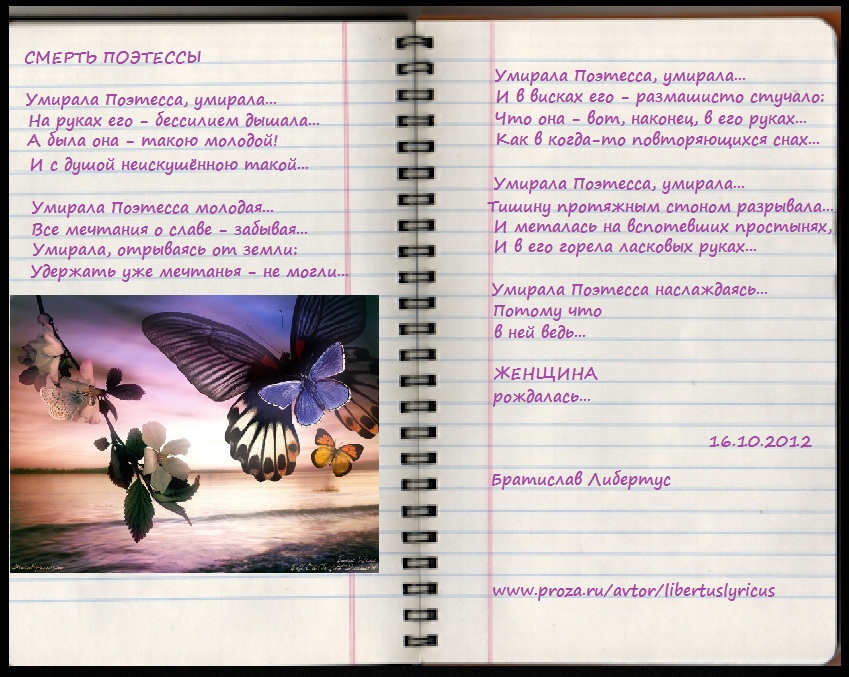 СМЕРТЬ ПОЭТЕССЫ
Умирала Поэтесса, умирала...
На руках его - бессилием дышала...
А была она - такою молодой!
И с душой неискушённою такой...
Умирала Поэтесса молодая...
Все мечтания о славе - забывая...
Умирала, отрываясь от земли:
Удержать уже мечтанья - не могли...
Умирала Поэтесса, умирала...
И в висках его - размашисто стучало:
Что она - вот, наконец, в его руках...
Как в когда-то повторяющихся снах...
Умирала Поэтесса, умирала...
Тишину протяжным стоном разрывала...
И металась на вспотевших простынях,
И в его горела ласковых руках...
Умирала Поэтесса наслаждаясь...
Потому что
в ней ведь...
ЖЕНЩИНА
рождалась...
16.10.2012
Братислав Либертус
www.proza.ru/avtor/libertuslyricus